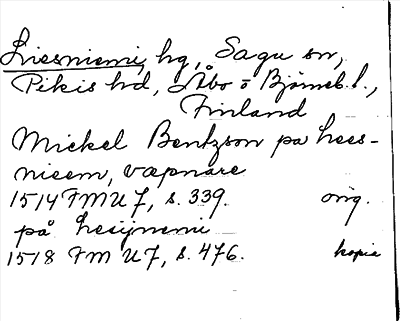 Liesniemi, hg, Sagu sn,
Pikis hd, Åbo o Björneb. l.,
Finland
Mickel Bentzson pa Lees-
nieem, væpnare
1514 FMU 7, s. 339. orig.
på Lesijnemi
1518 FMU 7, s. 476. kopia